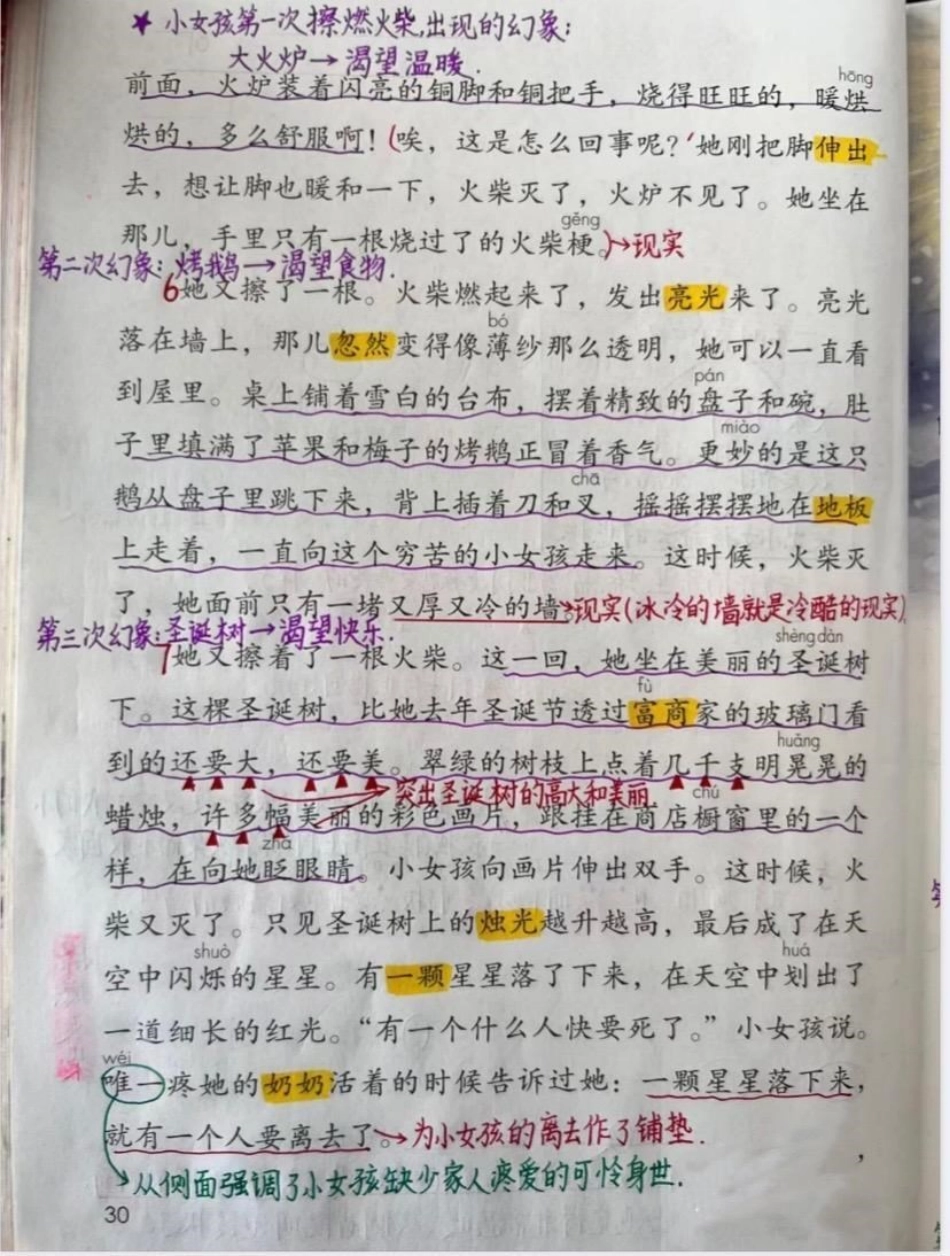 ★ 小女孩第一次擦燃火柴,出现的幻象:
大火炉→渴望温暖.
hōng
前面，火炉装着闪亮的铜脚和铜把手，烧得旺旺的，暖烘
烘的，多么舒服啊！(唉，这是怎么回事呢？她刚把脚伸出
去，想让脚也暖和一下，火柴灭了，火炉不见了。她坐在
gěng
那儿，手里只有一根烧过了的火柴梗。)→现实
第二次幻象: 烤鹅→渴望食物.
6她又擦了一根。火柴燃起来了，发出亮光来了。亮光
bó
落在墙上，那儿忽然变得像薄纱那么透明，她可以一直看
pán
到屋里。桌上铺着雪白的台布，摆着精致的盘子和碗，肚
miào
子里填满了苹果和梅子的烤鹅正冒着香气。更妙的是这只
chā
鹅从盘子里跳下来，背上插着刀和叉，摇摇摆摆地在地板
上走着，一直向这个穷苦的小女孩走来。这时候，火柴灭
了，她面前只有一堵又厚又冷的墙。→现实(冰冷的墙就是冷酷的现实)
第三次幻象:圣诞树→渴望快乐.
shèng dàn
7她又擦着了一根火柴。这一回，她坐在美丽的圣诞树
fù
下。这棵圣诞树，比她去年圣诞节透过富商家的玻璃门看
huǎng
到的还要大，还要美。翠绿的树枝上点着几千支明晃晃的
突出圣诞树的高大和美丽
chú
蜡烛，许多幅美丽的彩色画片，跟挂在商店橱窗里的一个
zhǎ
样，在向她眨眼睛。小女孩向画片伸出双手。这时候，火
柴又灭了。只见圣诞树上的烛光越升越高，最后成了在天
shuò huá
空中闪烁的星星。有一颗星星落了下来，在天空中划出了
一道细长的红光。“有一个什么人快要死了。”小女孩说。
wéi
唯一疼她的奶奶活着的时候告诉过她：一颗星星落下来，
就有一个人要离去了。→为小女孩的离去作了铺垫.
从侧面强调了小女孩缺少家人疼爱的可怜身世.
30